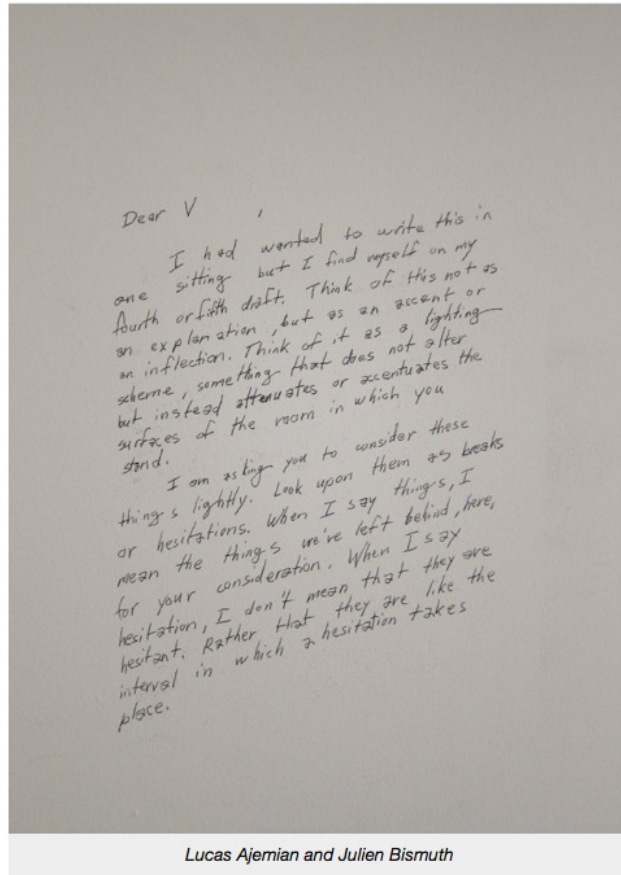 Dear V ,
I had wanted to write this in
one sitting but I find myself on my
fourth or fifth draft. Think of this not as
an explanation, but as an accent or
an inflection. Think of it as a lighting
scheme, something that does not alter
but instead attenuates or accentuates the
surfaces of the room in which you
stand.
I am asking you to consider these
things lightly. Look upon them as breaks
or hesitations. When I say things, I
mean the things we've left behind, here,
for your consideration. When I say
hesitation, I don't mean that they are
hesitant. Rather that they are like the
interval in which a hesitation takes
place.
Lucas Ajemian and Julien Bismuth